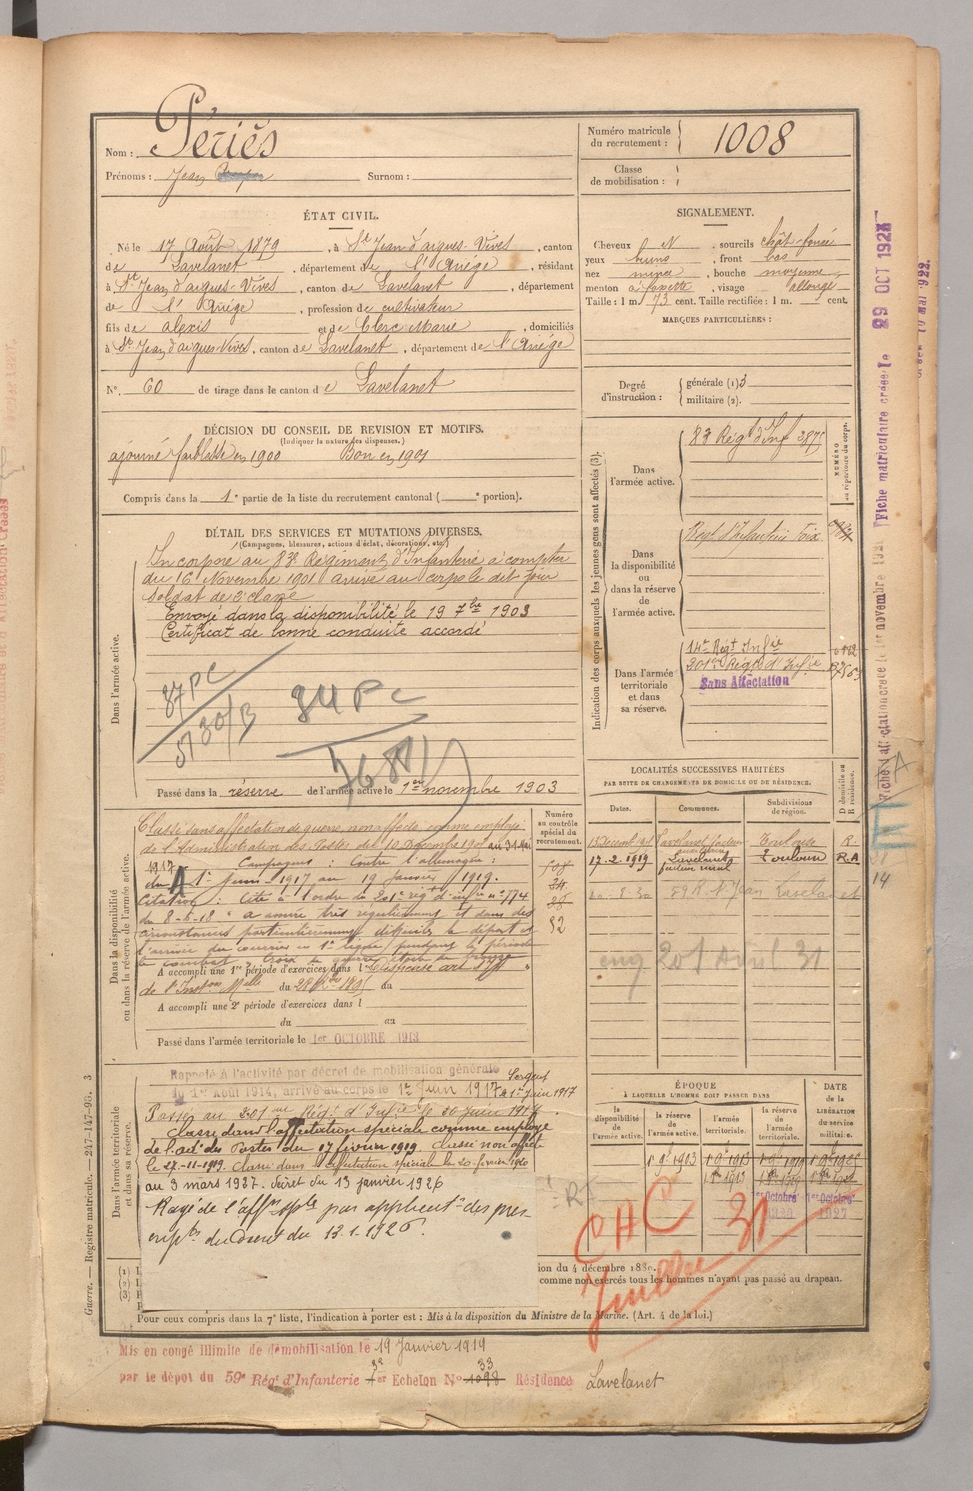 Nom : Périès
Prénoms : Jean
Surnom :
Numéro matricule du recrutement : 1008
Classe de mobilisation :
ÉTAT CIVIL.
Né le 17 Août 1879, à St Jean d'aigues-Vives, canton
de Lavelanet, département de l'Ariège, résidant
à St Jean d'aigues-Vives, canton de Lavelanet, département
de l'Ariège, profession de cultivateur
fils de alexis et de Clerc Marie, domiciliés
à St Jean d'aigues-Vives, canton de Lavelanet, département de l'Ariège
N° 60 de tirage dans le canton de Lavelanet
SIGNALEMENT.
Cheveux N, sourcils chât-foncé
yeux bruns, front bas
nez mince, bouche moyenne
menton à fossette, visage allongé
Taille : 1 m 73 cent. Taille rectifiée : 1 m. cent.
MARQUES PARTICULIÈRES :
Degré d'instruction : générale (1) 3
militaire (2).
DÉCISION DU CONSEIL DE REVISION ET MOTIFS.
(Indiquer la nature des dispenses.)
ajourné faiblesse en 1900 Bon en 1901
Compris dans la 1e partie de la liste du recrutement cantonal ( e portion).
DÉTAIL DES SERVICES ET MUTATIONS DIVERSES.
(Campagnes, blessures, actions d'éclat, décorations, etc.)
Dans l'armée active.
Incorporé au 83e Régiment d'Infanterie à compter
du 16 Novembre 1901 arrivé au corps le dit jour
Soldat de 2e classe
Envoyé dans la disponibilité le 19 7bre 1903
Certificat de bonne conduite accordé
87 PC
84 PC
Passé dans la réserve de l'armée active le 1er novembre 1903
Indication des corps auxquels les jeunes gens sont affectés (3).
NUMÉRO au répertoire du corps.
Dans l'armée active.
83 Régt d'Inf 2875
Dans la disponibilité ou dans la réserve de l'armée active.
Régt d'Infanterie Foix
Dans l'armée territoriale et dans sa réserve.
14e Régt Infie
201e Régt d'Infie
Sans Affectation
LOCALITÉS SUCCESSIVES HABITÉES
PAR SUITE DE CHANGEMENTS DE DOMICILE OU DE RÉSIDENCE.
Dates. Communes. Subdivisions de région. D domicile ou R résidence.
Lavelanet facteur Toulouse R.
17-2-1919 Lavelanet facteur rural Toulouse R.A
Lavelanet
201 Avril 31
Dans la disponibilité ou dans la réserve de l'armée active.
Numéro au contrôle spécial du recrutement.
Classé sans affectation de guerre non affecté comme employé
de l'Administration des Postes du 10 Décembre 1905 au 31 Mai
1917 Campagnes : Contre l'allemagne :
du 1er Juin 1917 au 19 Janvier 1919.
Citation : Cité à l'ordre du 201e régt d'infie n° 774
du 8-6-18 "a assuré très régulièrement et dans des
circonstances particulièrement difficiles le départ et
l'arrivée du courrier en 1e ligne pendant la période
52
A accompli une 1re période d'exercices dans l
du au
A accompli une 2e période d'exercices dans l
du au
Passé dans l'armée territoriale le 1er OCTOBRE 1913
Dans l'armée territoriale et dans sa réserve.
Rappelé à l'activité par décret de mobilisation générale
du 1er Août 1914, arrivé au corps le 1er Juin 1917 Sergent le 1er Juin 1917
Passé au 201me Régt d'Infie le 30 Juin 1917.
Classé dans l'affectation spéciale comme employé
de l'ad. des Postes du 17 février 1919 Classé non affecté
le 27-11-1919. Classé dans l'affectation spéciale le 20 février 1920
au 3 mars 1927. Décret du 13 janvier 1926
Rayé de l'affon sple par applicaton des pres-
criptns du Décret du 13.1.1926.
ÉPOQUE
À LAQUELLE L'HOMME DOIT PASSER DANS
la disponibilité de l'armée active. la réserve de l'armée active. l'armée territoriale. la réserve de l'armée territoriale.
DATE DE LA LIBÉRATION DU service militaire.
CAC
31
(1)
(2)
(3)
ion du 4 décembre 1889.
comme non exercés tous les hommes n'ayant pas passé au drapeau.
Pour ceux compris dans la 7e liste, l'indication à porter est : Mis à la disposition du Ministre de la Marine. (Art. 4 de la loi.)
Mis en congé illimité de démobilisation le 19 Janvier 1919
par le dépôt du 59e Régt d'Infanterie 3e Echelon N° 33 Résidence Lavelanet
Guerre. — Registre matricule. — 247-147-93. 3